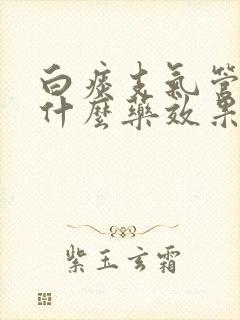 白痰支氣管
什麼藥效果
紫玉玄霜